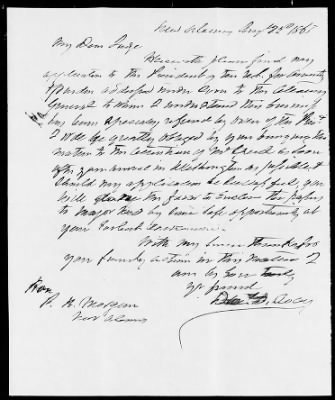 New Orleans Augt 25th 1865
My Dear Judge
Herewith please find my
application to the President of the U.S. for Amnesty
& Pardon addressed under cover to the Attorney
General to whom I understand this
has been specially referred by order of the Prest
I will be greatly obliged by your bringing this
matter to the attention of as soon
after your arrival in Washington as possible &
should my application be successful, you
will the favor to enclose the papers
to Major by some safe opportunity at
your earliest convenience.
With my sincere thanks for
your friendly action in this matter I
am as ever truly
yr friend
Hon
P. H. Morgan
New Orleans